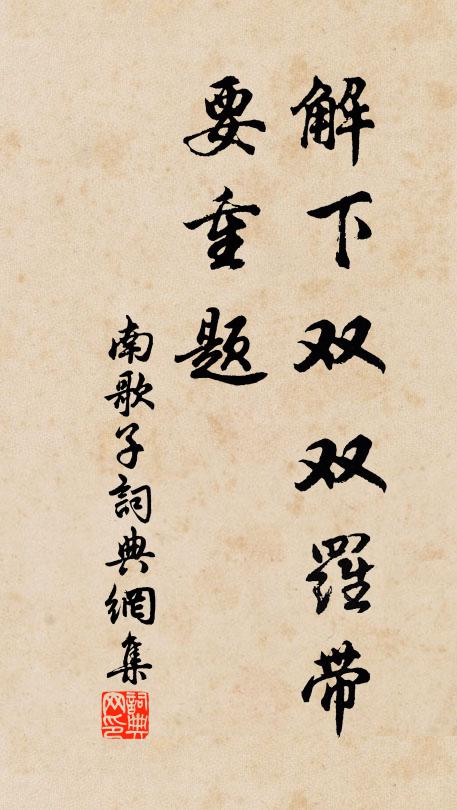 解下双双羅带
要重题
南歌子詞典網集
詞典网印